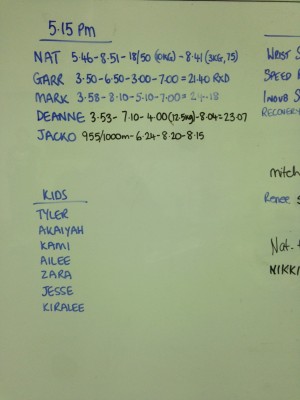 5.15 Pm
NAT 5.46-8.51-18/50 (10KG)-8.41 (3KG, 75)
GARR 3.50-6.50-3.00-7.00=21.40 RXD
MARK 3.58-8.10-5.10-7.00=24.18
DEANNE 3.53-7.10-4.00(12.5kg)-8.04=23.07
JACKO 955/1000m-6.24-8.20-8.15
KIDS
TYLER
AKAIYAH
KAMI
AILEE
ZARA
JESSE
KIRALEE
WRIST S
SPEED
INOV8 S
RECOVERY
mitch
Renee
Nat
NIKKI